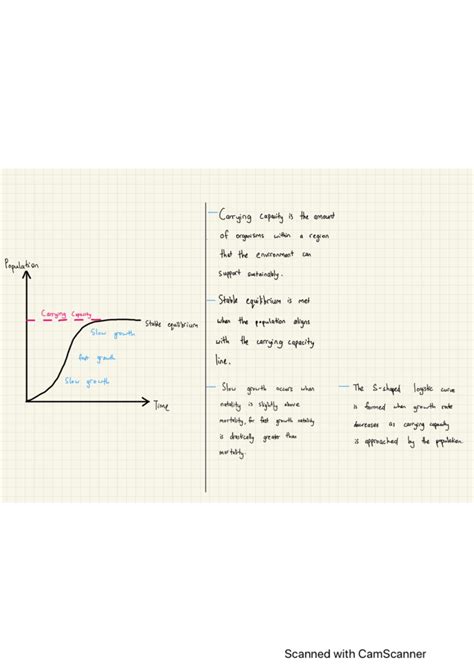 Population
Carrying Capacity
Slow growth
Stable equilibrium
fast growth
Slow growth
Time
Carrying capacity is the amount
of organisms within a region
that the environment can
support sustainably.
Stable equilibrium is met
when the population aligns
with the carrying capacity
line.
Slow growth occurs when
natality is slightly above
mortality, for fast growth natality
is drastically greater than
mortality.
The S-shaped logistic curve
is formed when growth rate
decreases as carrying capacity
is approached by the population.
Scanned with CamScanner